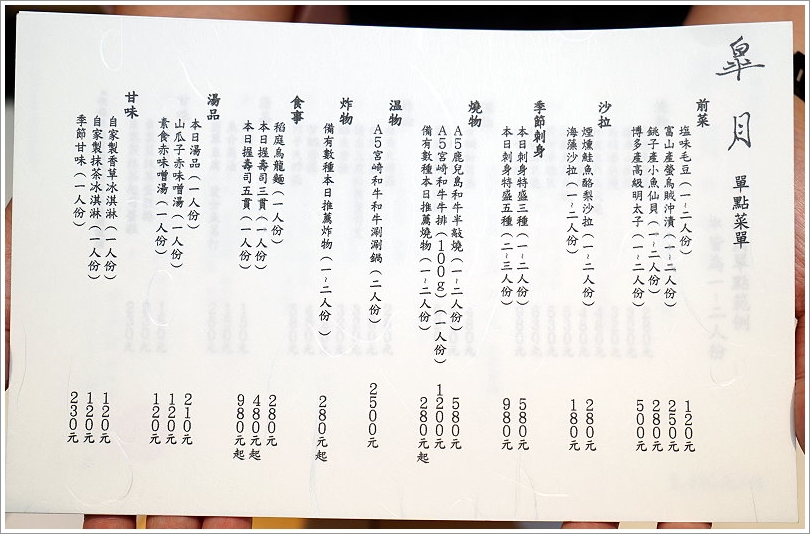 皐月
單點菜單
前菜
塩味毛豆(一~二人份) 120元
富山產螢烏賊沖漬(一~二人份) 250元
銚子產小魚仙貝(一~二人份) 280元
博多產高級明太子(一~二人份) 500元
沙拉
煙燻鮭魚酪梨沙拉(一~二人份) 280元
海藻沙拉(一~二人份) 180元
季節刺身
本日刺身特盛三種(一~二人份) 580元
本日刺身特盛五種(二~三人份) 980元
燒物
A5鹿兒島和牛半敲燒(一~二人份) 580元
A5宮崎和牛牛排(100g)(一人份) 1200元
備有數種本日推薦燒物(一~二人份) 280元起
溫物
A5宮崎和牛和牛涮涮鍋(二人份) 2500元
炸物
備有數種本日推薦炸物(一~二人份) 280元起
食事
稻庭烏龍麵(一人份) 280元
本日握壽司三貫(一人份) 480元起
本日握壽司五貫(一人份) 980元起
湯品
本日湯品(一人份) 210元
山瓜子赤味噌湯(一人份) 120元
素食赤味噌湯(一人份) 120元
甘味
自家製香草冰淇淋(一人份) 120元
自家製抹茶冰淇淋(一人份) 120元
季節甘味(一人份) 230元